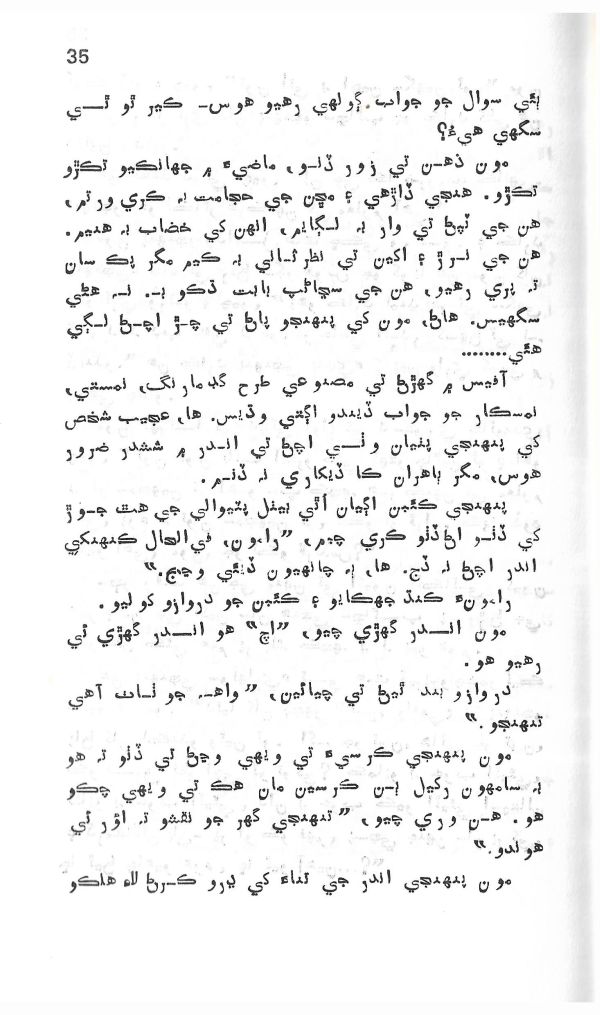 35
ٻئي سوال جو جواب ڳولهي رهيو هوس- ڪير ٿو ٿي
سگهي هيءُ؟
مون ذهن تي زور ڏنو، ماضيءَ ۾ جهانڪيو تڪڙو
تڪڙو. هنجي ڏاڙهي ۽ مڇن جي حجامت بہ ڪري ورتم،
هن جي ٽِڪڻ تي وار بہ لڳايم، انهن کي خضاب بہ هنيم.
هن جي لوڙ ۽ اکين تي نظر ثاني بہ ڪيم مگر پڪ سان
تہ پري رهيو، هن جي سڃاڻپ بابت ڌڪو بہ نہ هڻي
سگهيس. هاڻ، مون کي پنهنجو پاڻ تي چڙ اچڻ لڳي
هئي........
آفيس ۾ گهڙڻ تي مصنوعي طرح گڊ مارننگ، نمستي،
نمسڪار جو جواب ڏيندو اڳتي وڌيس. ها، عجيب شخص
کي پنهنجي پٺيان ويٺي اچڻ تي اندر ۾ ششدر ضرور
هوس، مگر ٻاهران ڪا ڏيکاري نہ ڏنم.
پنهنجي ڪئبن اڳيان اُتي بيٺل پٽيوالي جي هٿ جوڙ
کي ڏٺو اڻڏٺو ڪري چيم، ”رامون، في الحال ڪنهنکي
اندر اچڻ نہ ڏج. ها، ٻہ چانهيون ڏيئي وڃج.“
رامونءَ ڪنڌ جهڪايو ۽ ڪئبن جو دروازو کوليو.
مون اندر گهڙي چيو، ”اچ“ هو اندر گهڙي ئي
رهيو هو.
دروازو بند ٿيڻ تي چيائين، ”واهہ جو ٺاٺ آهي
تنهنجو.“
مون پنهنجي ڪرسيءَ تي ويهي وڃڻ تي ڏٺو تہ هو
بہ سامهون رکيل ٻن ڪرسين مان هڪ تي ويهي چڪو
هو. هن وري چيو، ”تنهنجي گهر جو نقشو تہ اؤر ئي
هوندو.“
مون پنهنجي اندر جي تناءَ کي ڍرو ڪرڻ لاءِ هلڪو